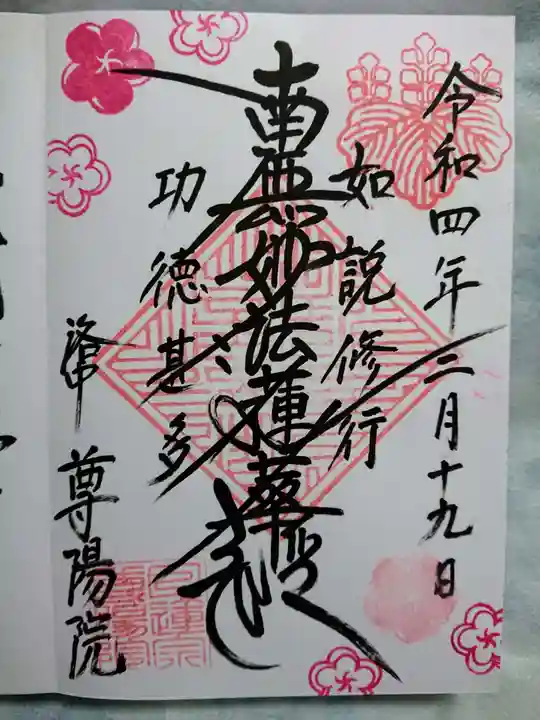 令和四年二月十九日
如説修行
南無妙法蓮華経
功徳甚多
洛中
尊陽院